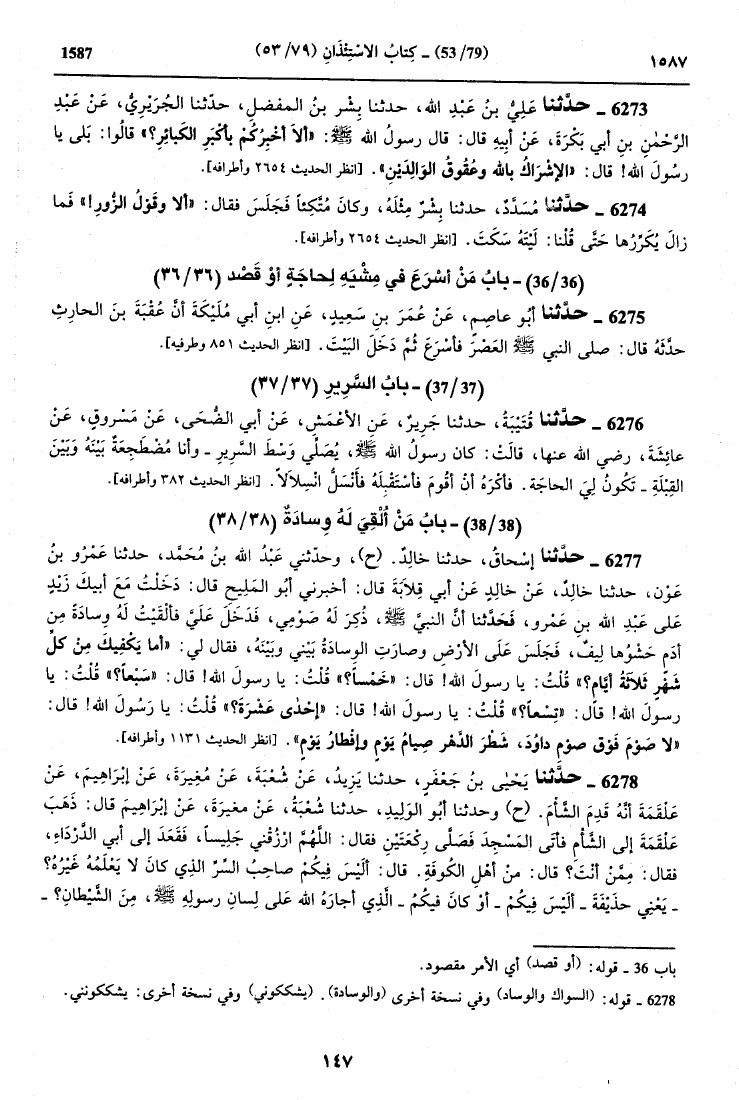 ١٥٨٧ (53/79) ـ كِتابُ الاسْتِئْذَانِ (٥٣/٧٩) 1587
6273 ـ حدَّثنا عَلِيُّ بنُ عَبْدِ الله، حدثنا بِشْر بنُ المفضل، حدّثنا الجُرَيْرِيُّ، عَنْ عَبْدِ
الرَّحْمٰنِ بنِ أبي بَكْرَةَ، عَنْ أبِيهِ قال: قال رسولُ الله ﷺ: «ألاَ أخبِرُكُمْ بأكْبَرِ الكَبائِرِ؟» قالُوا: بَلى يا
رسُولَ الله! قال: «الإشْرَاكُ بالله وعُقُوقُ الوَالِدَيْنِ». [انظر الحديث ٢٦٥٤ وأطرافه].
6274 ـ حدَّثنا مُسَدَّدٌ، حدثنا بِشْرٌ مِثْلَهُ، وكانَ مُتَّكِئاً فَجَلَسَ فقال: «ألا وقَوْلُ الزُّورِ!» فَما
زالَ يُكَرِّرُها حَتَّى قُلْنا: لَيْتَهُ سَكَتَ. [انظر الحديث ٢٦٥٤ وأطرافه].
(36/36) ـ بابُ مَنْ أسْرَعَ في مِشْيَهِ لِحاجَةٍ أوْ قَصْد (٣٦/٣٦)
6275 ـ حدَّثنا أبُو عاصِمٍ، عَنْ عُمَرَ بنِ سَعِيدٍ، عَنِ ابنِ أبي مُلَيْكَةَ أنَّ عُقْبَةَ بنَ الحارِثِ
حدَّثَهُ قال: صلى النبي ﷺ العَصْرَ فأسْرَعَ ثُمَّ دَخَلَ البَيْتَ. [انظر الحديث ٨٥١ وطرفيه].
(37/37) ـ بابُ السَّرِيرِ (٣٧/٣٧)
6276 ـ حدَّثنا قُتَيْبَةُ، حدثنا جَرِيرٌ، عَنِ الأعْمَشِ، عَنْ أبي الضُّحَى، عَنْ مَسْرُوقٍ، عَنْ
عائِشَةَ، رضي الله عنها، قالَتْ: كان رسولُ الله ﷺ، يُصَلِّي وَسْطَ السَّرِيرِ ـ وأنا مُضْطَجِعَةٌ بَيْنَهُ وَبَيْنَ
القِبْلَةِ ـ تَكُونُ لِيَ الحاجَة. فأكْرَهُ أنْ أقُومَ فأسْتَقْبِلَهُ فأنْسَلُّ انْسِلاَلاً. [انظر الحديث ٣٨٢ وأطرافه].
(38/38) ـ بابُ مَنْ أُلْقِيَ لَهُ وِسادَةٌ (٣٨/٣٨)
6277 ـ حدَّثنا إسْحاقُ، حدثنا خالِدٌ. (ح)، وحدّثني عَبْدُ الله بنُ مُحَمَّد، حدثنا عَمْرُو بنُ
عَوْن، حدثنا خالِدٌ، عَنْ خالِدٍ عَنْ أبي قِلابَةَ قال: أخبرني أبُو المَلِيحِ قال: دَخَلْتُ مَعَ أبيكَ زَيْدٍ
على عَبْدِ الله بنِ عَمْرو، فَحَدَّثنا أنَّ النبيَّ ﷺ، ذُكِرَ لَهُ صَوْمِي، فَدَخَلَ عَلَيَّ فألْقَيْتُ لَهُ وِسادَةً مِن
أدَم حَشْوُها لِيفٌ، فَجَلَسَ عَلَى الأرْضِ وصارَتِ الوِسادَةُ بَيْنِي وبَيْنَهُ، فقال لي: «أما يَكْفِيكَ مِنْ كلِّ
شَهْرٍ ثَلاَثَةُ أيَّام؟» قُلْتُ: يا رسولَ الله! قال: «خَمْساً؟» قُلْتُ: يا رسولَ الله! قال: «سَبْعاً؟» قُلْتُ: يا
رسولَ الله! قال: «تِسْعاً؟» قُلْتُ: يا رسولَ الله! قال: «إحْدَى عَشْرَةَ؟» قُلْتُ: يا رَسُولَ الله! قال:
«لا صَوْمَ فَوْقَ صوْمِ داوُدَ، شَطْرَ الدَّهْرِ صِيامُ يَوْمٍ وإفْطارُ يَوْمٍ». [انظر الحديث ١١٣١ وأطرافه].
6278 ـ حدَّثنا يَحْيَى بنُ جَعْفَرٍ، حدثنا يَزِيدُ، عَنْ شُعْبَةَ، عَنْ مُغِيرَةَ، عَنْ إبْرَاهِيمَ، عَنْ
عَلْقَمَةَ أنَّهُ قَدِمَ الشَّأمَ. (ح) وحدثنا أبُو الوَلِيدِ، حدثنا شُعْبَةُ، عَنْ مغيرَةَ، عَنْ إبْراهِيمَ قال: ذَهَبَ
عَلْقَمَةُ إلى الشَّأمِ فأتَى المَسْجِدَ فَصَلَّى رَكْعَتَيْنِ فقال: اللَّهُمَّ ارْزُقْني جَلِيساً، فَقَعَدَ إلى أبي الدَّرْدَاءِ،
فقال: مِمَّنْ أنْتَ؟ قال: منْ أهْلِ الكُوفَةِ. قال: ألَيْسَ فِيكُمْ صاحِبُ السِّرِّ الذِي كانَ لا يَعْلَمُهُ غَيْرُهُ؟
ـ يَعْنِي حذَيْفَةَ ـ ألَيْسَ فِيكُمْ ـ أوْ كانَ فيكُمُ ـ الَّذِي أجارَهُ الله عَلى لِسانِ رسولِهِ ﷺ، مِنَ الشَّيْطانِ؟ ـ
باب 36 ـ قوله: (أو قصد) أي الأمر مقصود.
6278 ـ قوله: (السواك والوساد) وفي نسخة أخرى (والوسادة). (يشككوني) وفي نسخة أخرى: يشككونني.
١٤٧